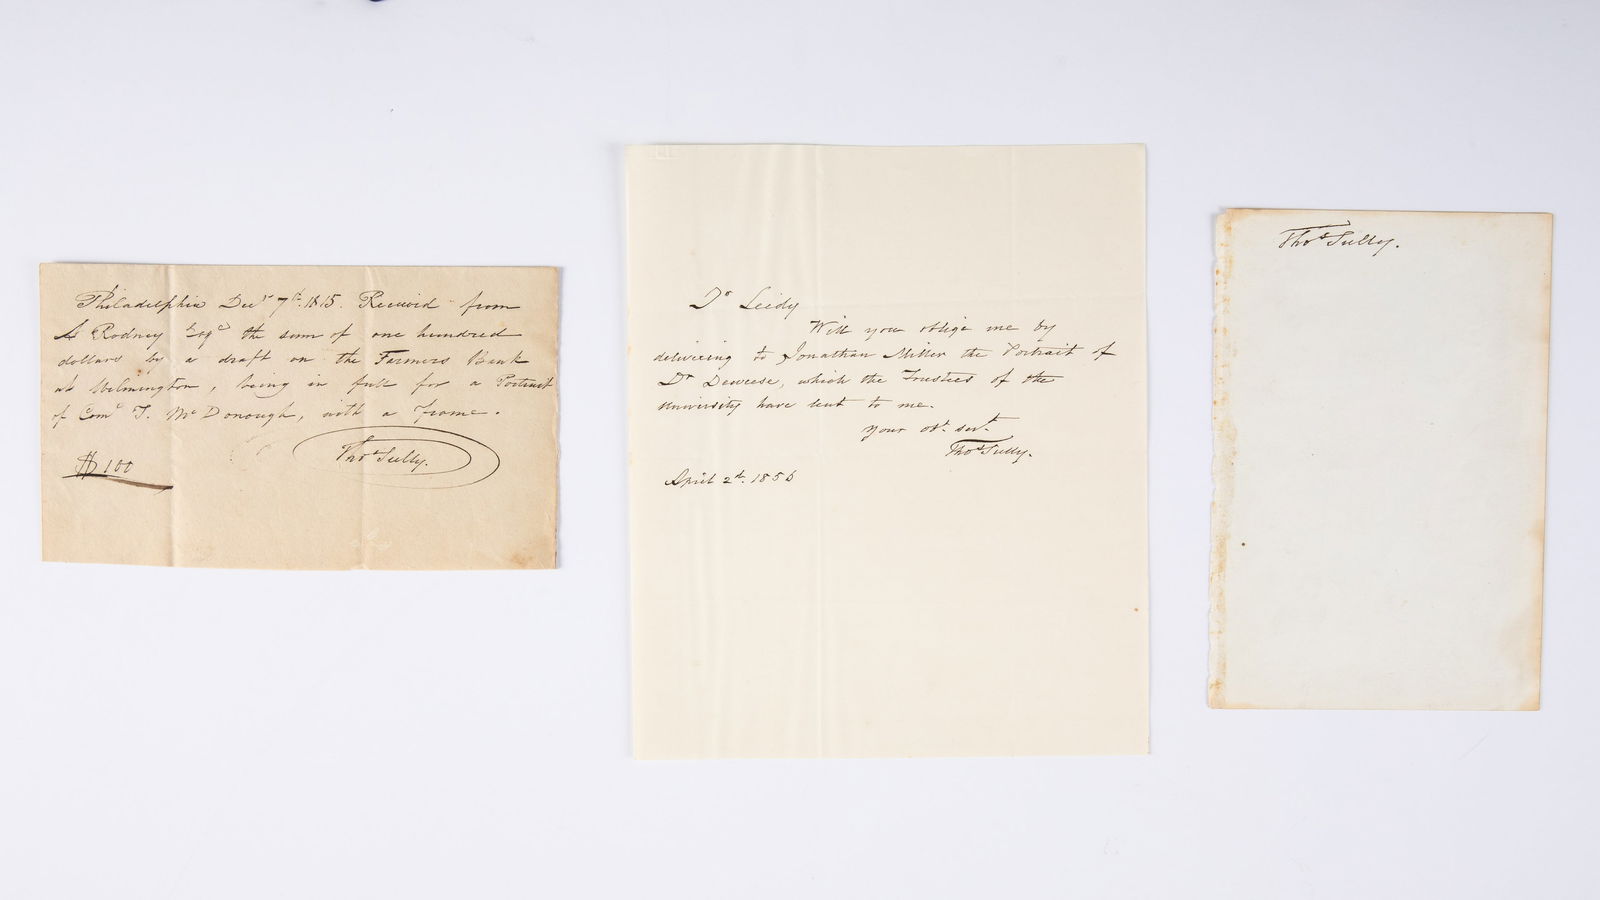 Philadelphia Decr 7th. 1815. Received from
A Rodney Esqe the sum of one hundred
dollars by a draft on the Farmers Bank
at Wilmington, being in full for a Portrait
of Como T. McDonough, with a frame.
Thos Sully.
$100
Dr Leidy
Will you oblige me by
delivering to Jonathan Miller the Portrait of
Dr Deweese, which the Trustees of the
University have lent to me.
your obt. servt.
Thos Sully.
April 2d. 1856
Thos Sully.